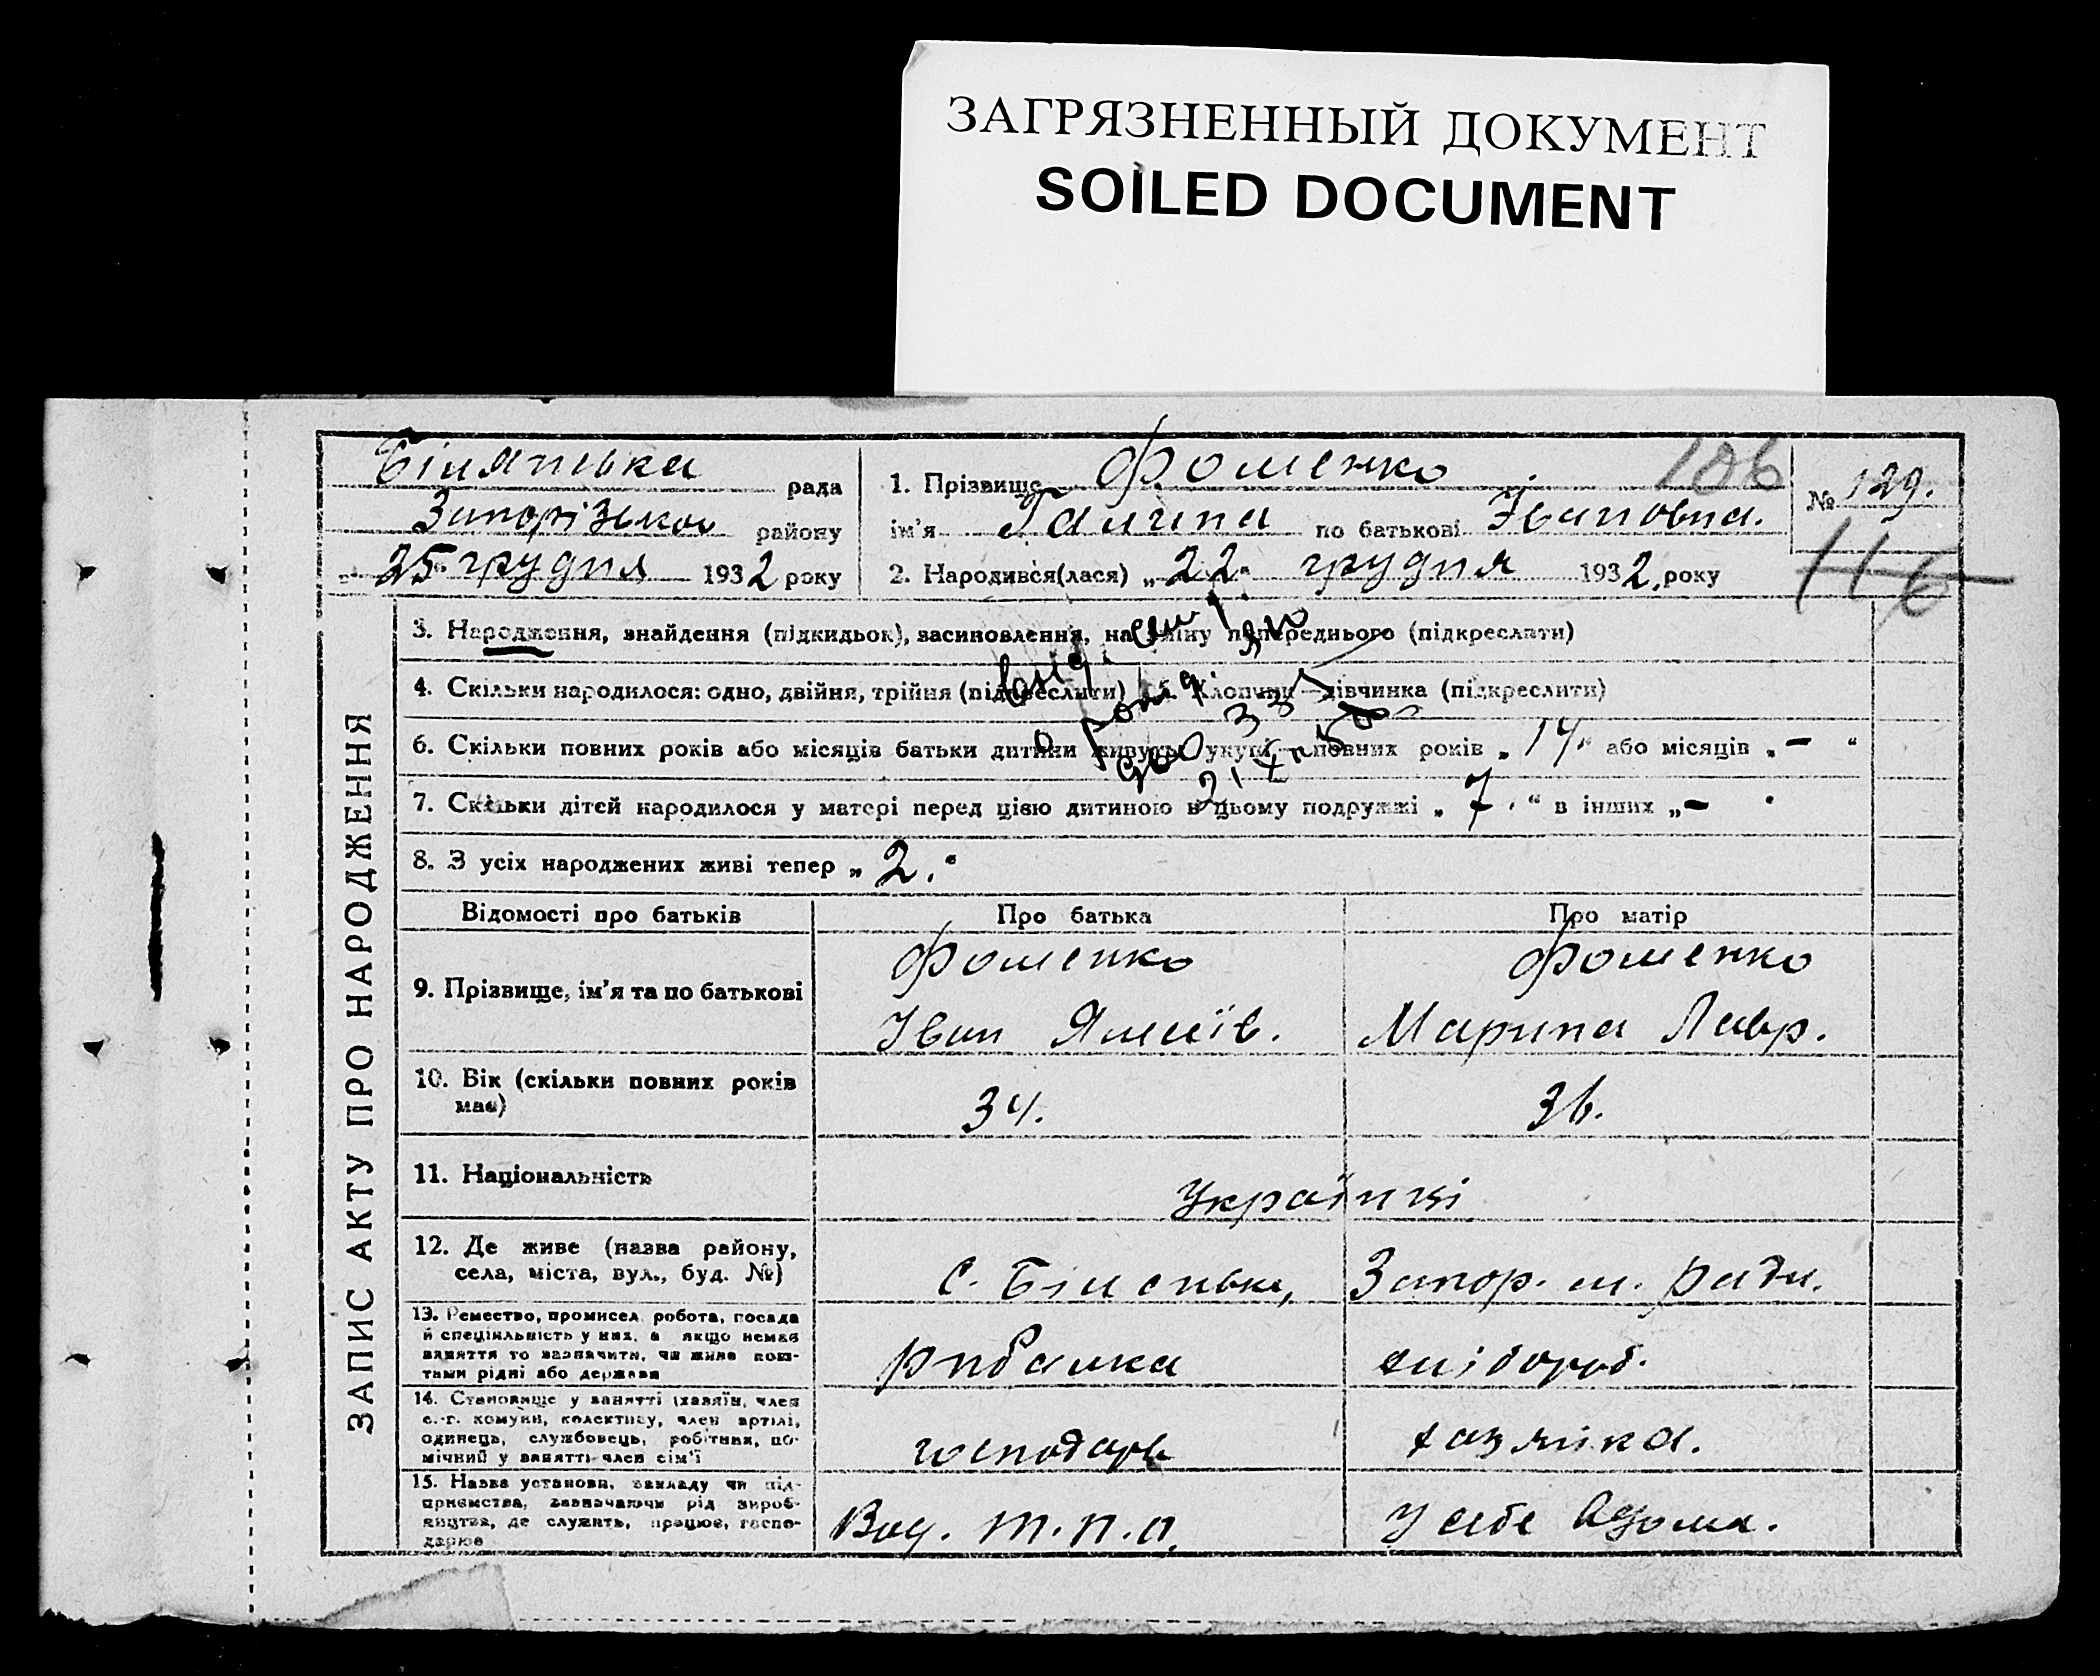 ЗАГРЯЗНЕННЫЙ ДОКУМЕНТ
SOILED DOCUMENT
рада
району
25 грудня 1932 року
1. Прізвище Фоменко 106
ім'я Галина по батькові Івановна.
№ 129.
116
2. Народився(лася) „22“ грудня 1932 року
ЗАПИС АКТУ ПРО НАРОДЖЕННЯ
3. Народження, знайдення (підкидьок), засиновлення, на зміну попереднього (підкреслити)
4. Скільки народилося: одно, двійня, трійня (підкреслити) 5. Хлопчик—дівчинка (підкреслити)
6. Скільки повних років або місяців батьки дитини живуть укупі,—повних років „14“ або місяців „–“
7. Скільки дітей народилося у матері перед цією дитиною в цьому подружжі „7.“ в інших „–
8. З усіх народжених живі тепер „2.“
Відомості про батьків Про батька Про матір
9. Прізвище, ім'я та по батькові
Фоменко Фоменко
Іван Марина Лавр.
10. Вік (скільки повних років має)
34. 36.
11. Національність
Українці
12. Де живе (назва району,
села, міста, вул., буд. №)
с. Біленьке, Запор. м. ради.
13. Ремество, промисел, робота, посада
й спеціяльність у них, а якщо немає
заняття то зазначити, чи живе кош-
тами рідні або держави
рибалка хлібороб.
14. Становище у занятті (хазяїн, член
с.-г. комуни, колективу, член артілі,
одинець, службовець, робітник, по-
мічний у занятті член сім'ї
господарь хазяйка.
15. Назва установи, закладу чи під-
приємства, зазначаючи рід вироб-
ництва, де служить, працює, госпо-
дарює
т.п.о. У себе вдома.